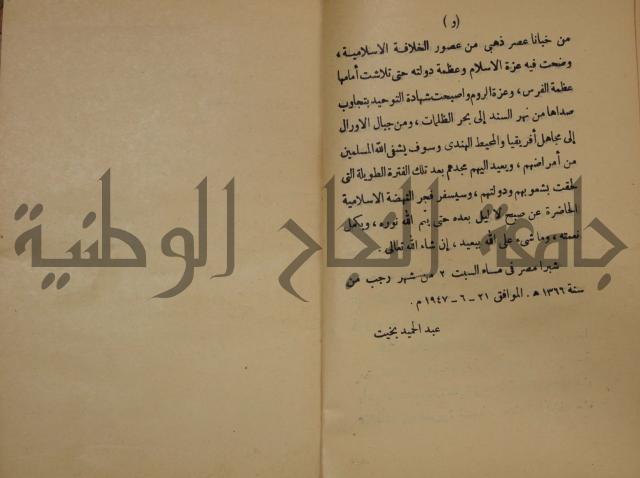 (و)
من خبانا عصر ذهبى من عصور الخلافة الاسلامية،
وضحت فيه عزة الاسلام وعظمة دولته حتى تلاشت أمامها
عظمة الفرس، وعزة الروم واصبحت شهادة التوحيد يتجاوب
صداها من نهر السند إلى بحر الظلمات، ومن جبال الاورال
إلى مجاهل أفريقيا والمحيط الهندى وسوف يشفى الله المسلمين
من أمراضهم، ويعيد اليهم مجدهم بعد تلك الفترة الطويلة التى
لحقت بشعوبهم ودولتهم، وسيسفر فجر النهضة الاسلامية
الحاضرة عن صبح لا ليل بعده حتى يتم الله نوره، ويكمل
نعمته، وما شىء على الله ببعيد، إن شاء الله تعالى.
شبرا مصر فى مساء السبت ٢ من شهر رجب من
سنة ١٣٦٦ ھ. الموافق ٢١ - ٦ - ١٩٤٧ م.
عبد الحميد بخيت
جامعة النجاح الوطنية